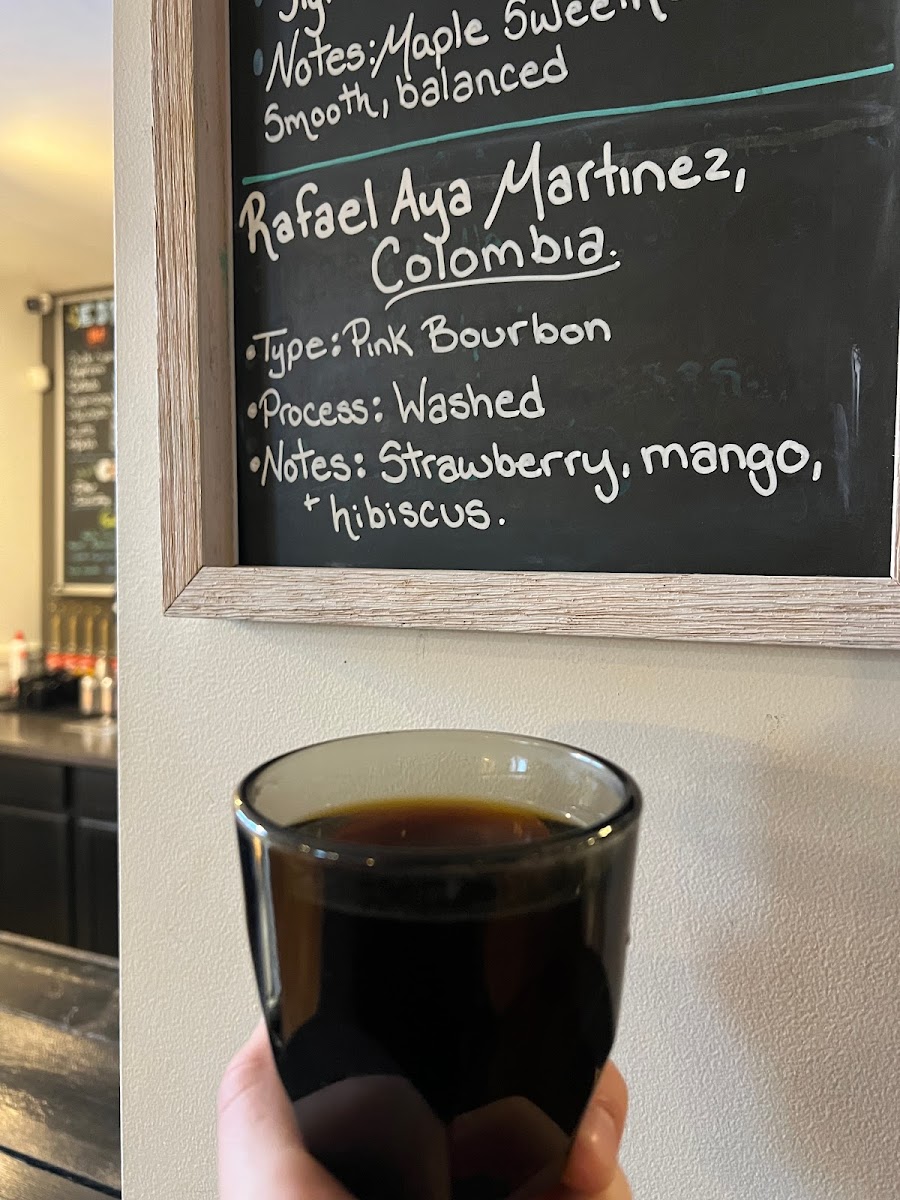 • Notes: Maple
Smooth, balanced
Rafael Aya Martinez,
Colombia.
• Type: Pink Bourbon
• Process: Washed
• Notes: Strawberry, mango,
+ hibiscus.